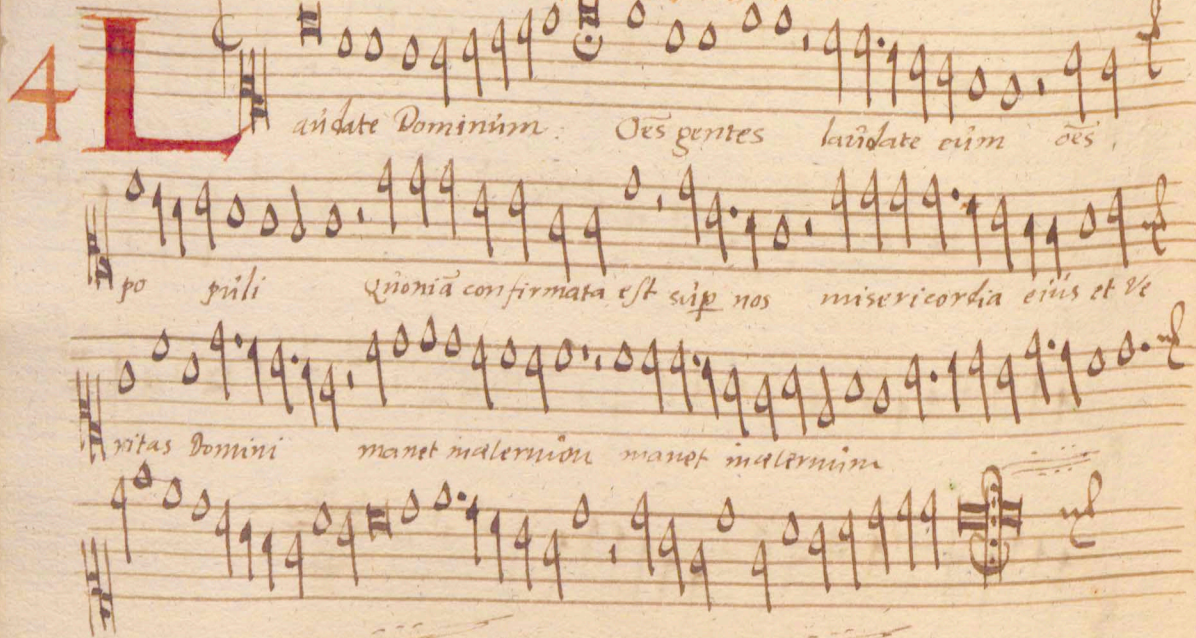 4
Laudate Dominum : Oēs gentes laudate eum oēs
po puli Quoniā confirmata est sup nos misericordia eius et Ve
ritas Domini manet inæternum manet inæternum